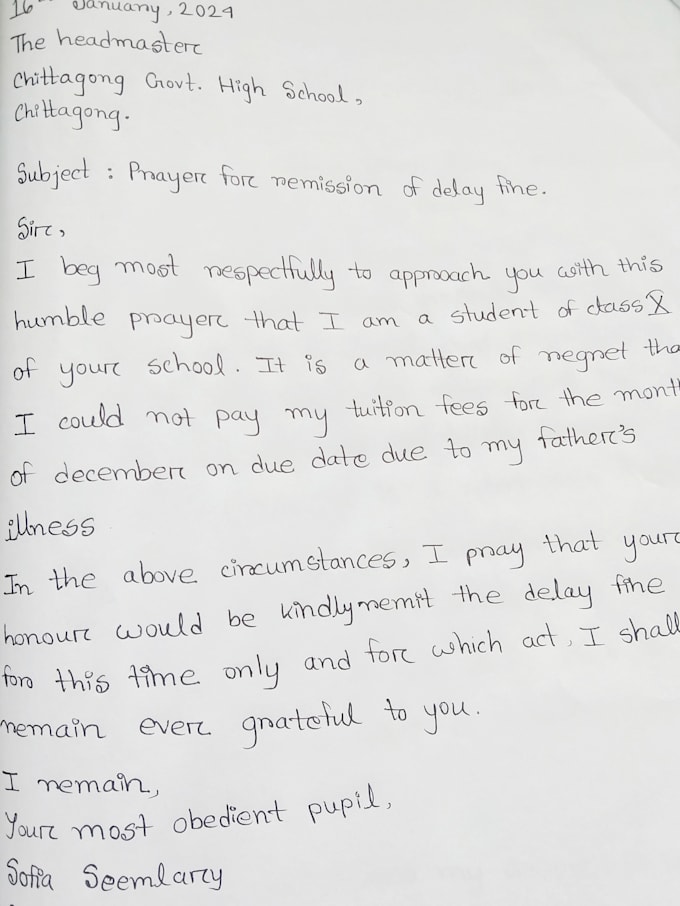 16th January, 2024
The headmaster
Chittagong Govt. High School,
Chittagong.
Subject : Prayer for remission of delay fine.
Sir,
I beg most respectfully to approach you with this
humble prayer that I am a student of class X
of your school. It is a matter of regret tha
I could not pay my tuition fees for the month
of december on due date due to my father's
illness
In the above circumstances, I pray that your
honour would be kindly remit the delay fine
for this time only and for which act, I shall
remain ever grateful to you.
I remain,
Your most obedient pupil,
Sofia Seemlary